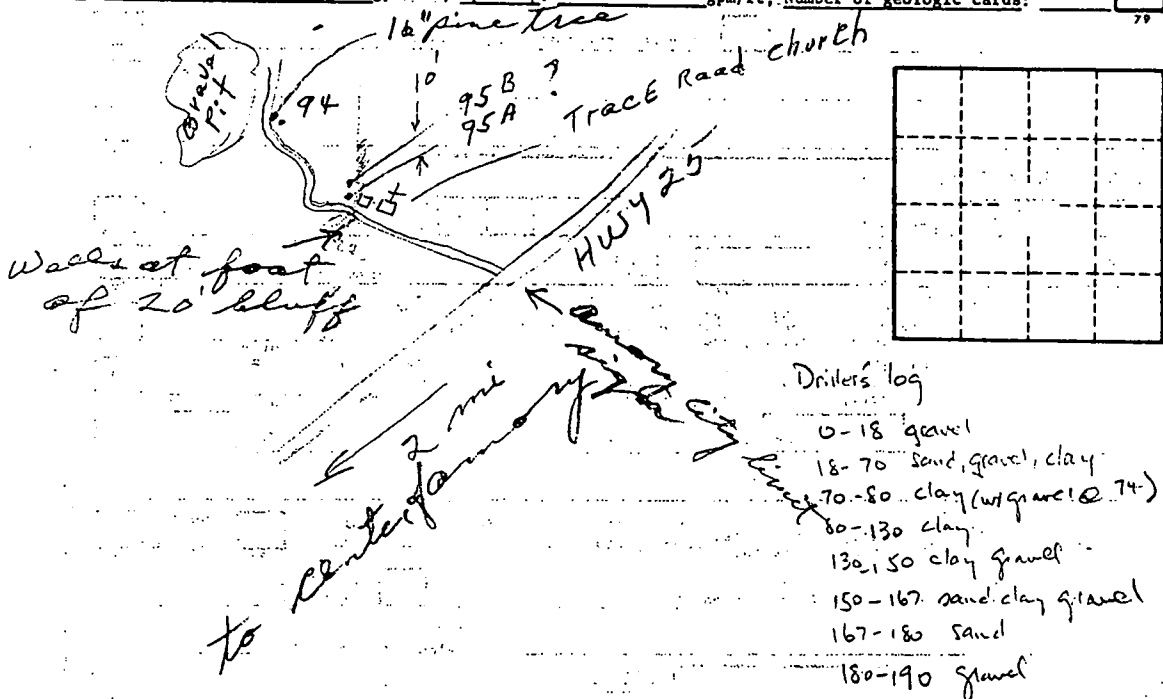 gpm/ft; Number of geologic cards:
79
16" pine tree
Gravel
Pit
94
10'
95 B ?
95A
TracE Road church
HWY 25
Wells at foot
of 20' bluff
Amory City limit
sign
2 mi
to center of amory
Driller's log
0-18 gravel
18-70 sand, gravel, clay
70-80 clay (w/gravel @ 74)
80-130 clay
130-150 clay gravel
150-167 sand clay gravel
167-180 sand
180-190 gravel